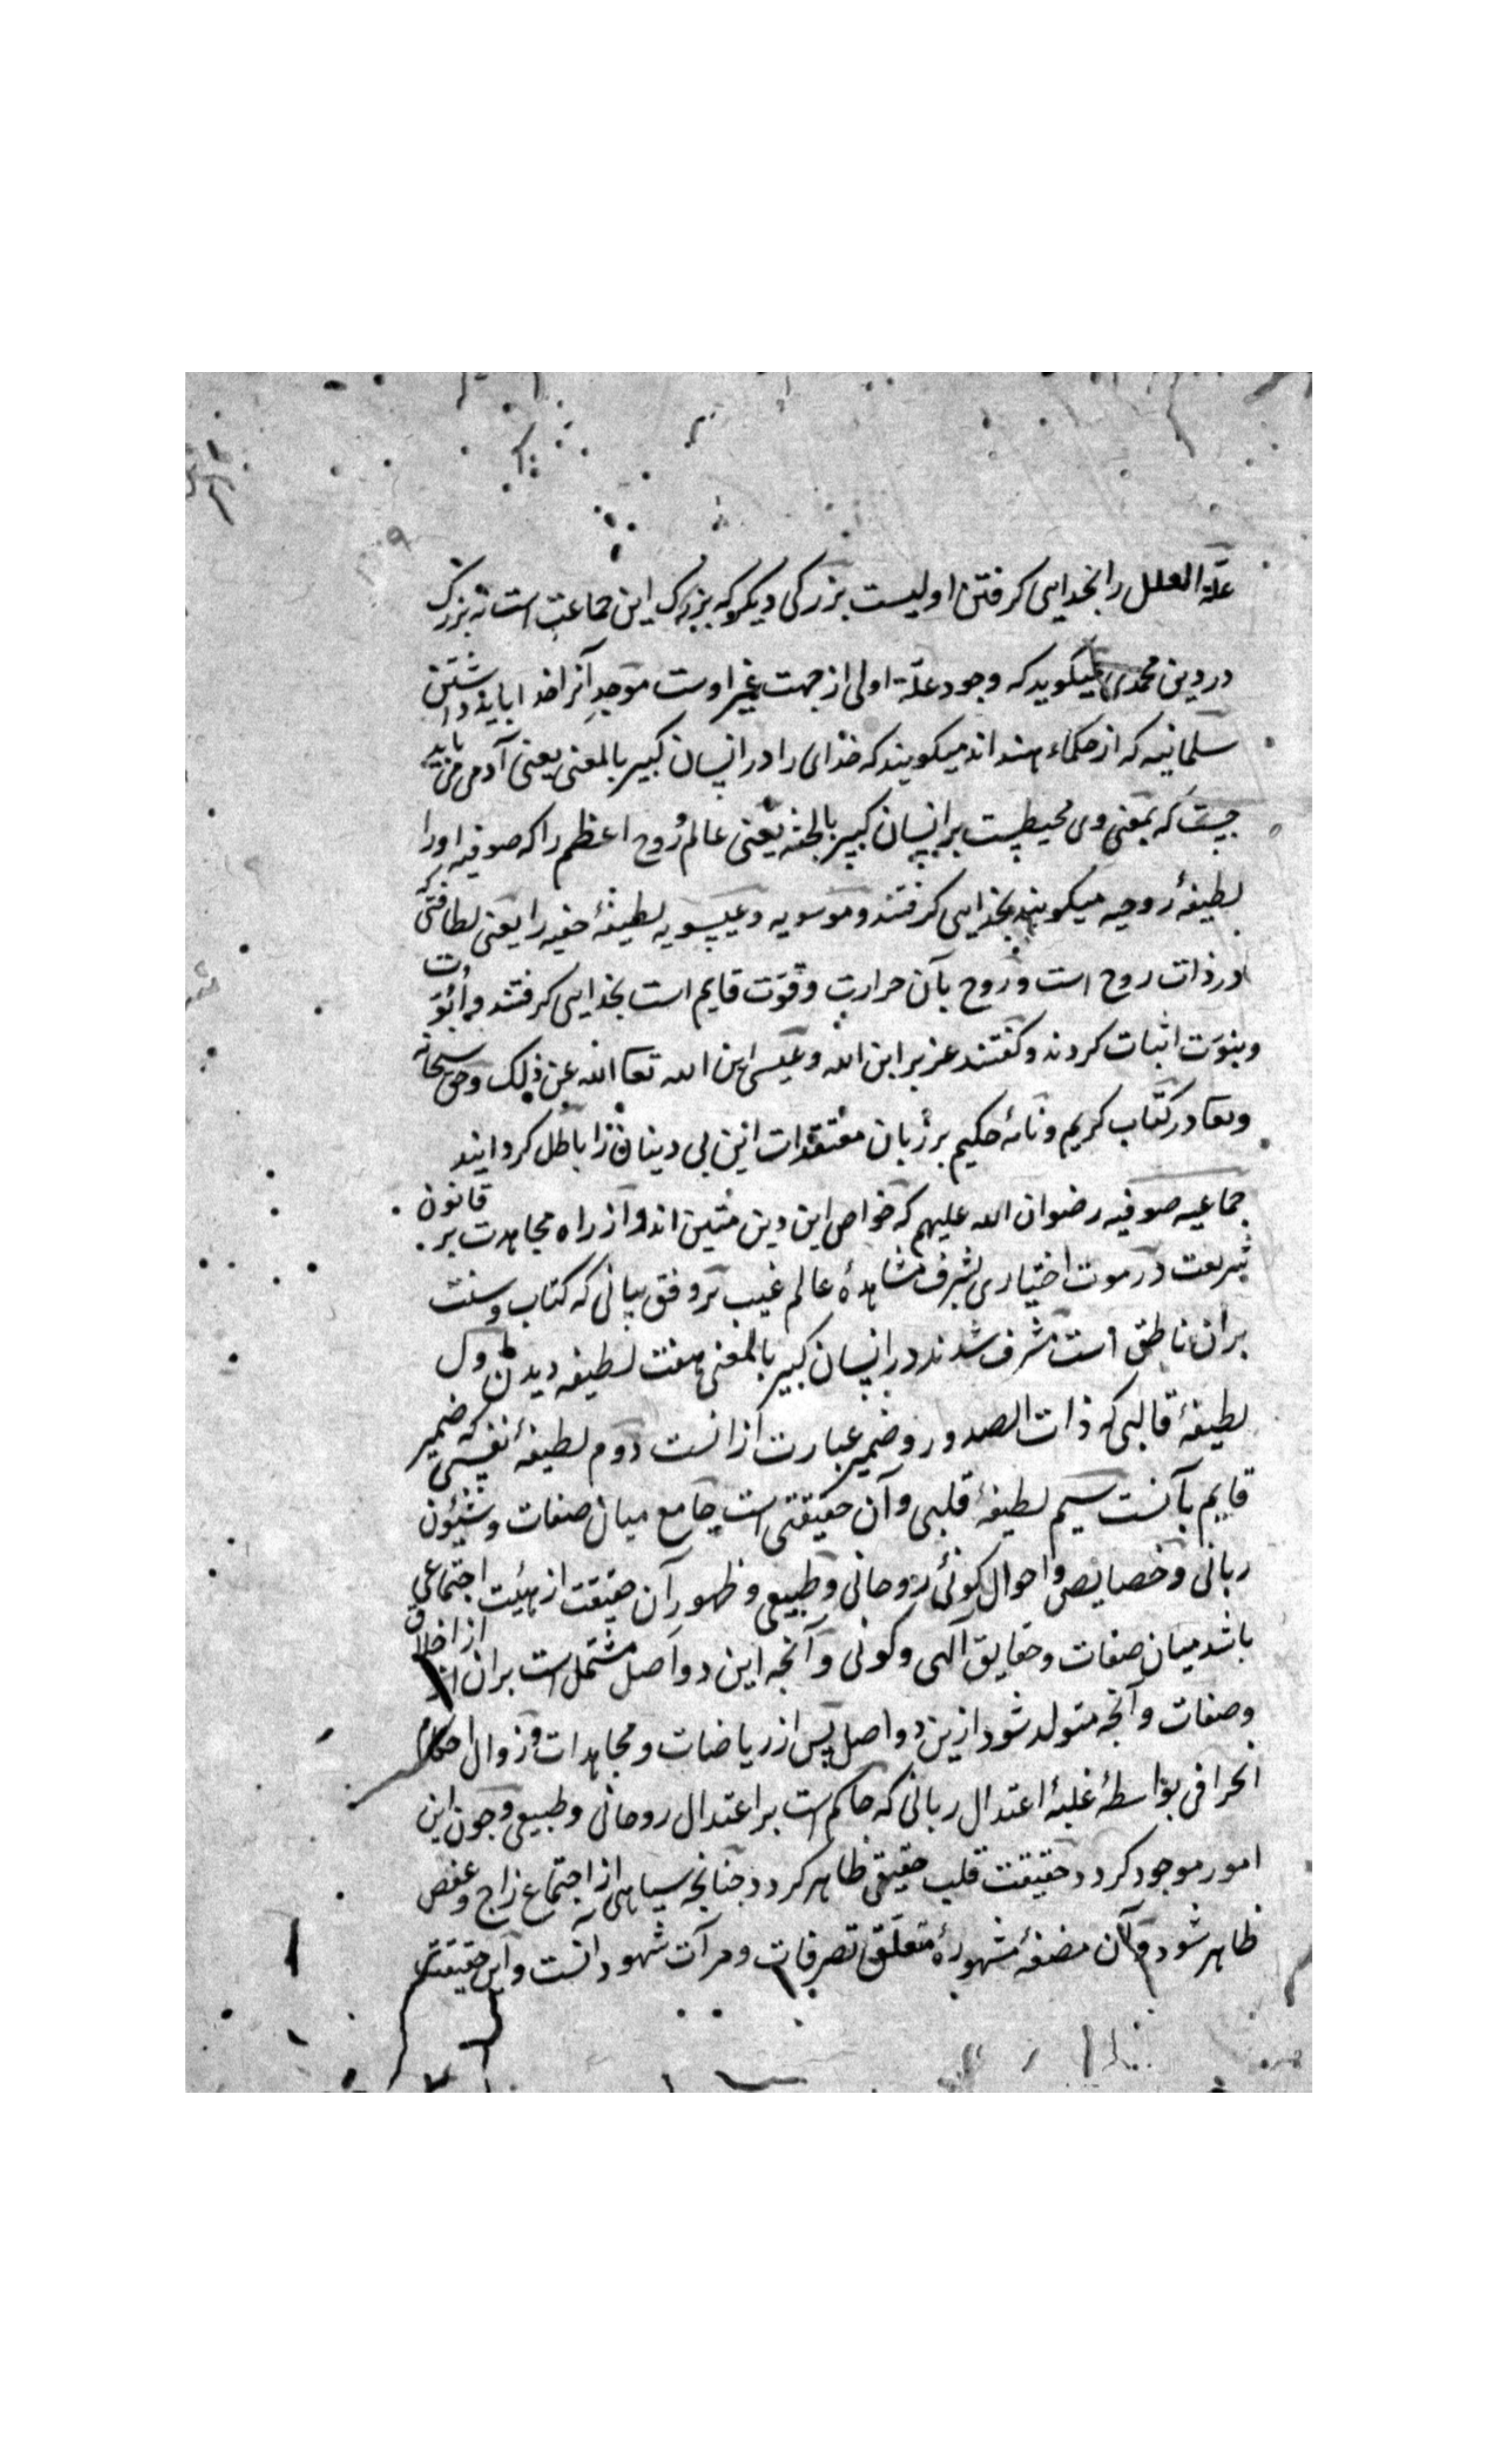 علّة العلل را بخدایی کرفتن اولیست بزرکی دیکر که بزرک این جماعت است نه بزرک
در دین محمدی میکوید که وجود علّة اولی از جهت غیر اوست موجد آنرا خدا باید داشتن
سلمانیه که از حکماء هند اند میکویند که خدای را در انسان کبیر بالمعنی یعنی آدمی می باید
جست که بمعنی وی محیطست بر انسان کبیر بالجثه یعنی عالم روح اعظم را که صوفیه اورا
لطیفهٔ روحیه میکویند بخدایی کرفتند و موسویه و عیسویه لطیفهٔ خفیه را یعنی لطافتی که
در ذات روح است و روح بآن حرارت و قوّت قایم است بخدایی کرفتند و ابوّت
و بنوّت اثبات کردند و کفتند عزیر ابن الله و عیسی ابن الله تعا الله عن ذلک و حق سبحانه
و تعا در کتاب کریم و نامهٔ حکیم بر زبان معتقدات این بی دینان را باطل کردانید
جماعیه صوفیه رضوان الله علیهم که خواص این دین متین اند و از راه مجاهدت بر قانون
شریعت در موت اختیاری بشرف مشاهدهٔ عالم غیب بر وفق بیانی که کتاب و سنت
بران ناطق است مشرف شدند در انسان کبیر بالمعنی هفت لطیفه دیدن اول
لطیفهٔ قالبی که ذات الصدور و ضمیر عبارت ازانست دوم لطیفهٔ نفسی که ضمیر
قایم بآنست سیم لطیفهٔ قلبی و آن حقیقتی است جامع میان صفات و شئون
ربانی و خصایص و احوال کونی روحانی و طبیعی و ظهور آن حقیقت از هیئت اجتماعی
باشد میان صفات و حقایق آلهی و کونی و آنجه این دو اصل مشتمل است بران از اخلاق
و صفات و آنجه متولد شود ازین دو اصل پس از ریاضات و مجاهدات و زوال احکام
انحرافی بواسطهٔ غلبهٔ اعتدال ربانی که حاکم است بر اعتدال روحانی و طبیعی و جون این
امور موجود کردد حقیقت قلب حقیقی ظاهر کردد جنانجه سیاهی از اجتماع زاج و عفص
ظاهر شود و آن مضغهٔ مشهوره متعلّق تصرفات و مرآت شهود آنست و این حقیقت